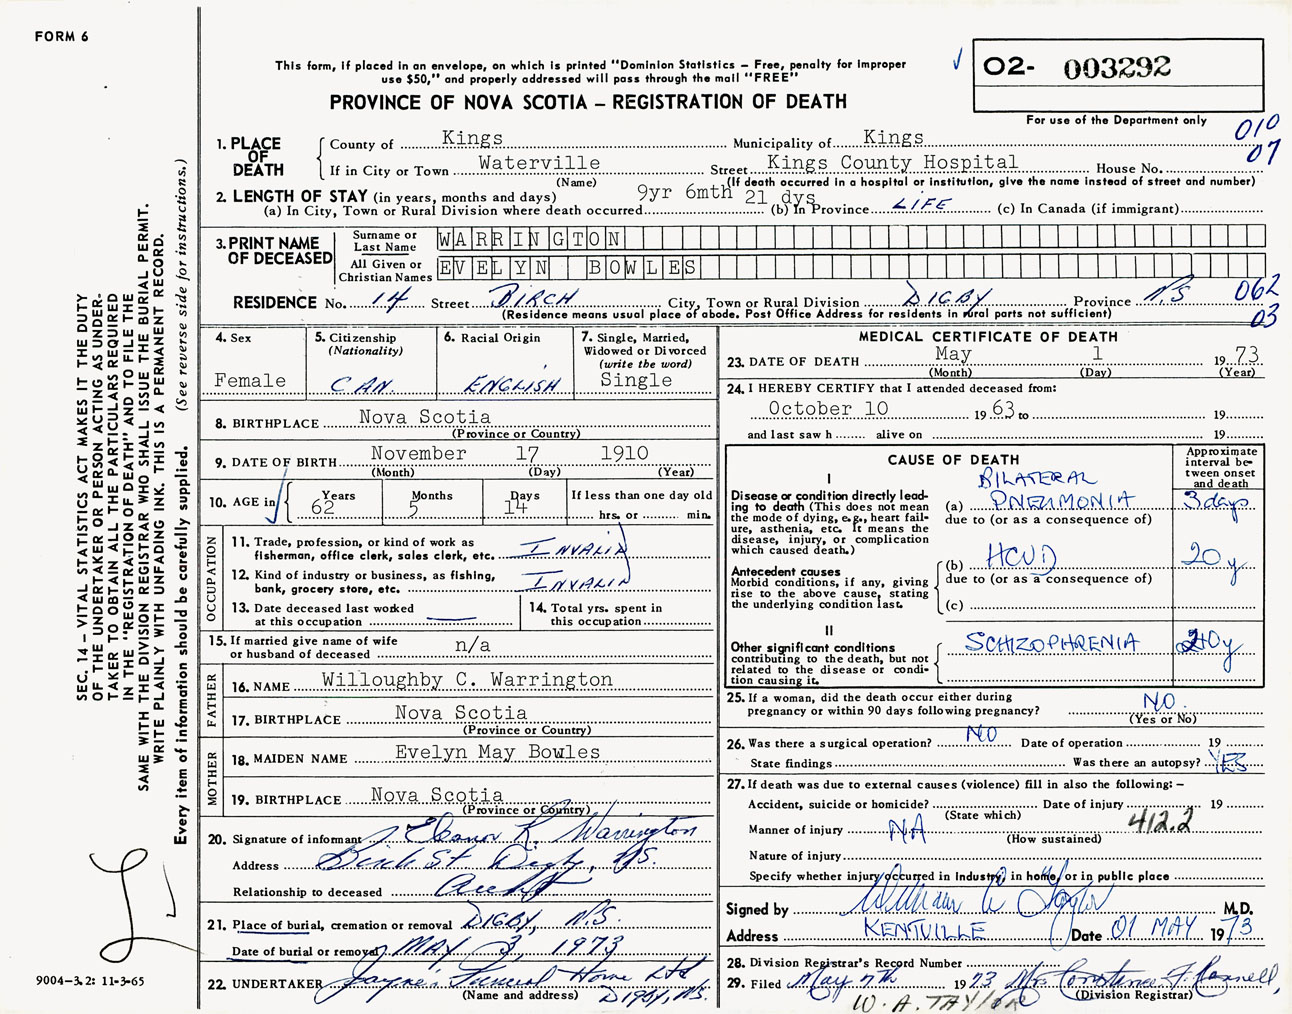 FORM 6
This form, if placed in an envelope, on which is printed "Dominion Statistics – Free, penalty for improper
use $50," and properly addressed will pass through the mail "FREE"
PROVINCE OF NOVA SCOTIA – REGISTRATION OF DEATH
✓ 02- 003292
For use of the Department only
010
07
SEC. 14 – VITAL STATISTICS ACT MAKES IT THE DUTY
OF THE UNDERTAKER OR PERSON ACTING AS UNDER-
TAKER TO OBTAIN ALL THE PARTICULARS REQUIRED
IN THE "REGISTRATION OF DEATH" AND TO FILE THE
SAME WITH THE DIVISION REGISTRAR WHO SHALL ISSUE THE BURIAL PERMIT.
WRITE PLAINLY WITH UNFADING INK. THIS IS A PERMANENT RECORD.
Every item of information should be carefully supplied. (See reverse side for instructions.)
1. PLACE OF DEATH
County of Kings Municipality of Kings
If in City or Town Waterville Street Kings County Hospital House No.
(Name) (If death occurred in a hospital or institution, give the name instead of street and number)
2. LENGTH OF STAY (in years, months and days) 9yr 6mth 21 dys
(a) In City, Town or Rural Division where death occurred (b) In Province LIFE (c) In Canada (if immigrant)
3. PRINT NAME OF DECEASED
Surname or Last Name WARRINGTON
All Given or Christian Names EVELYN BOWLES
RESIDENCE No. 14 Street BIRCH City, Town or Rural Division DIGBY Province N.S 062
(Residence means usual place of abode. Post Office Address for residents in rural parts not sufficient) 03
4. Sex
Female
5. Citizenship
(Nationality)
CAN.
6. Racial Origin
ENGLISH
7. Single, Married,
Widowed or Divorced
(write the word)
Single
8. BIRTHPLACE Nova Scotia
(Province or Country)
9. DATE OF BIRTH November 17 1910
(Month) (Day) (Year)
10. AGE in Years Months Days If less than one day old
62 5 14 hrs. or min.
OCCUPATION
11. Trade, profession, or kind of work as
fisherman, office clerk, sales clerk, etc. INVALID
12. Kind of industry or business, as fishing,
bank, grocery store, etc. INVALID
13. Date deceased last worked
at this occupation
14. Total yrs. spent in
this occupation
15. If married give name of wife
or husband of deceased n/a
FATHER
16. NAME Willoughby C. Warrington
17. BIRTHPLACE Nova Scotia
(Province or Country)
MOTHER
18. MAIDEN NAME Evelyn May Bowles
19. BIRTHPLACE Nova Scotia
(Province or Country)
20. Signature of informant Eleanor R. Warrington
Address Birch St Digby, N.S.
Relationship to deceased Aunt
21. Place of burial, cremation or removal DIGBY, N.S.
Date of burial or removal MAY 3, 1973
22. UNDERTAKER Jayne's Funeral Home Ltd
(Name and address) Digby, N.S.
MEDICAL CERTIFICATE OF DEATH
23. DATE OF DEATH May 1 1973
(Month) (Day) (Year)
24. I HEREBY CERTIFY that I attended deceased from:
October 10 1963 to 19
and last saw h alive on 19
CAUSE OF DEATH
Approximate
interval be-
tween onset
and death
I
Disease or condition directly lead-
ing to death (This does not mean
the mode of dying, e.g., heart fail-
ure, asthenia, etc. It means the
disease, injury, or complication
which caused death.)
BILATERAL
(a) PNEUMONIA 3 days
due to (or as a consequence of)
Antecedent causes
Morbid conditions, if any, giving
rise to the above cause, stating
the underlying condition last.
(b) HCVD 20 y
due to (or as a consequence of)
(c)
II
Other significant conditions
contributing to the death, but not
related to the disease or condi-
tion causing it.
SCHIZOPHRENIA 40y
25. If a woman, did the death occur either during
pregnancy or within 90 days following pregnancy? NO
(Yes or No)
26. Was there a surgical operation? NO Date of operation 19
State findings Was there an autopsy? YES
27. If death was due to external causes (violence) fill in also the following: –
Accident, suicide or homicide? Date of injury 19
(State which) 412.2
Manner of injury NA
(How sustained)
Nature of injury
Specify whether injury occurred in Industry, in home, or in public place
Signed by William A Taylor M.D.
Address KENTVILLE Date 01 MAY 1973
28. Division Registrar's Record Number
29. Filed May 7th 1973 Mrs Constance F.
(Division Registrar)
W. A. TAYLOR
9004-3.2: 11-3-65